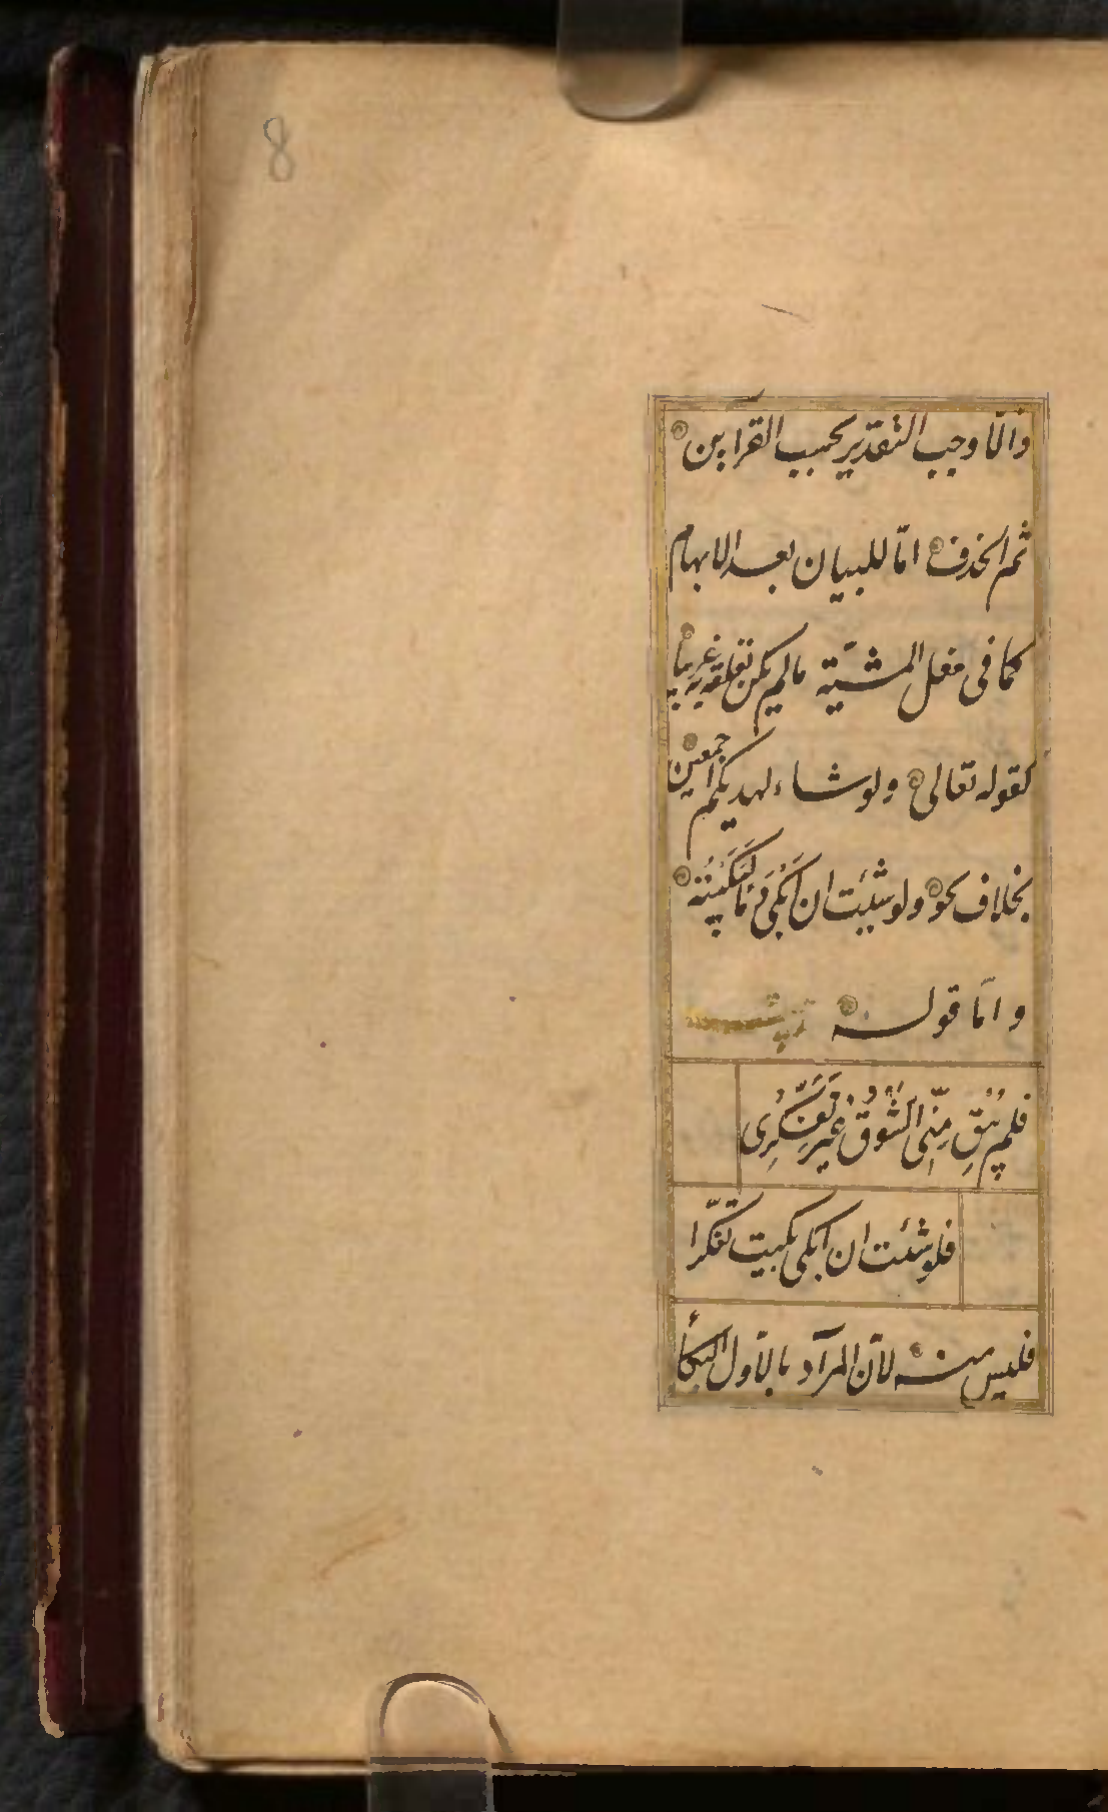 8
والّا وجب التقدير بحسب القراين
ثم الحذف امّا للبيان بعد الابهام
كما فى فعل المشيّة ما لم يكن تعلقه به غريبًا
كقوله تعالى ولو شاء لهديكم اجمعين
بخلاف نحو ولو شئت ان اَبْكى دمًا لَبَكَيْتُه
و امّا قوله
فلم يُبْقِ مِنّى الشَوقُ غيرَ تَفَكُّرِى
فلو شئت ان ابكى بكيت تفكّرا
فليس منه لانّ المراد بالاول البكأ